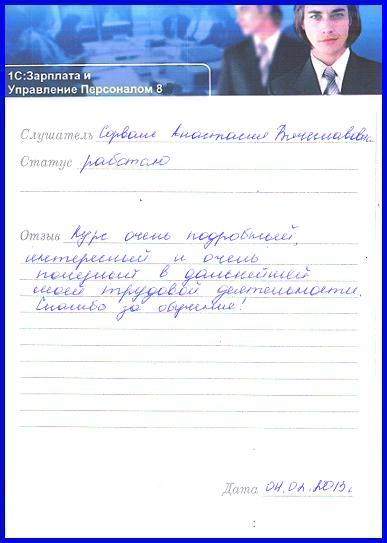 1С:Зарплата и
Управление Персоналом 8
Слушатель Анастасия Вячеславовн.
Статус работаю
Отзыв Курс очень подробный,
интересный и очень
полезный в дальнейшей
моей трудовой деятельности.
Спасибо за обучение!
Дата 04.02.2013г.